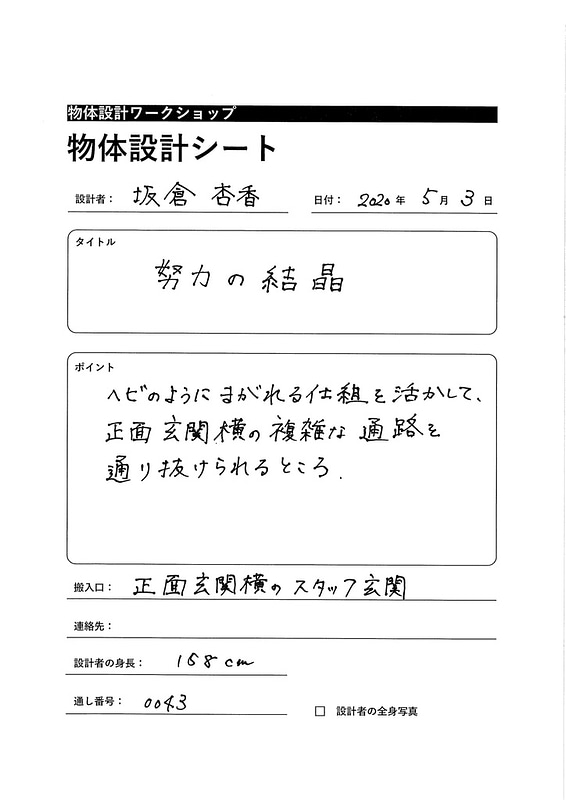 物体設計ワークショップ
物体設計シート
設計者： 坂倉 杏香 日付： 2020 年 5 月 3 日
タイトル
努力の結晶
ポイント
ヘビのようにまがれる仕組を活かして、
正面玄関横の複雑な通路を
通り抜けられるところ.
搬入口： 正面玄関横のスタッフ玄関
連絡先：
設計者の身長： 158cm
通し番号： 0043
□ 設計者の全身写真